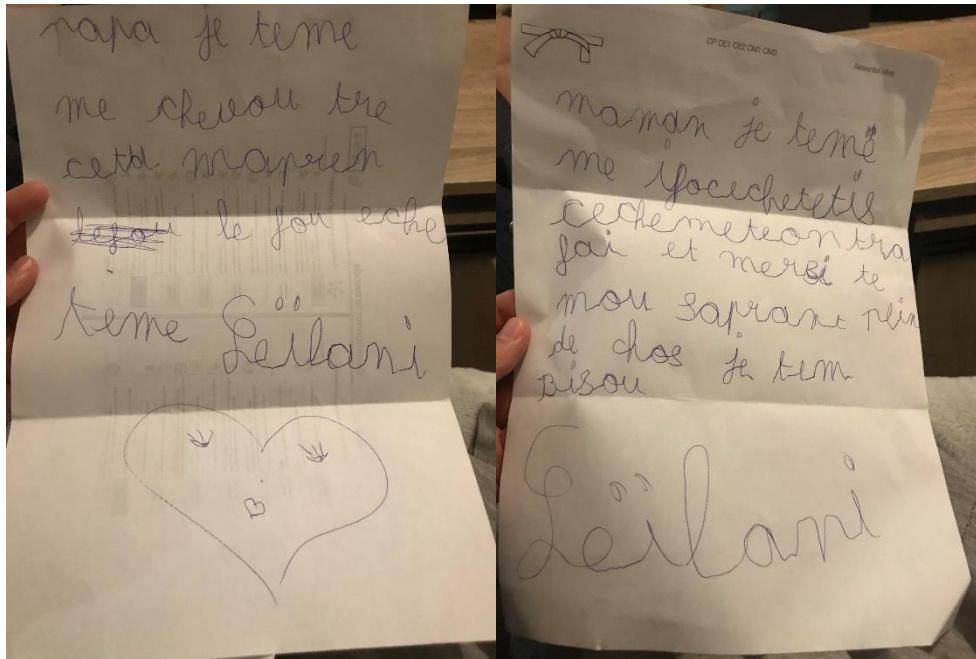 papa je teme
me chevou tre
cettd mapren
le fou eche
teme Leïlani
CP CE1 CE2 CM1 CM2
maman je teme
me
cechemeteon tra
fai et mersi te
mou soprant plein
de chos je tem
Bisou
Leïlani